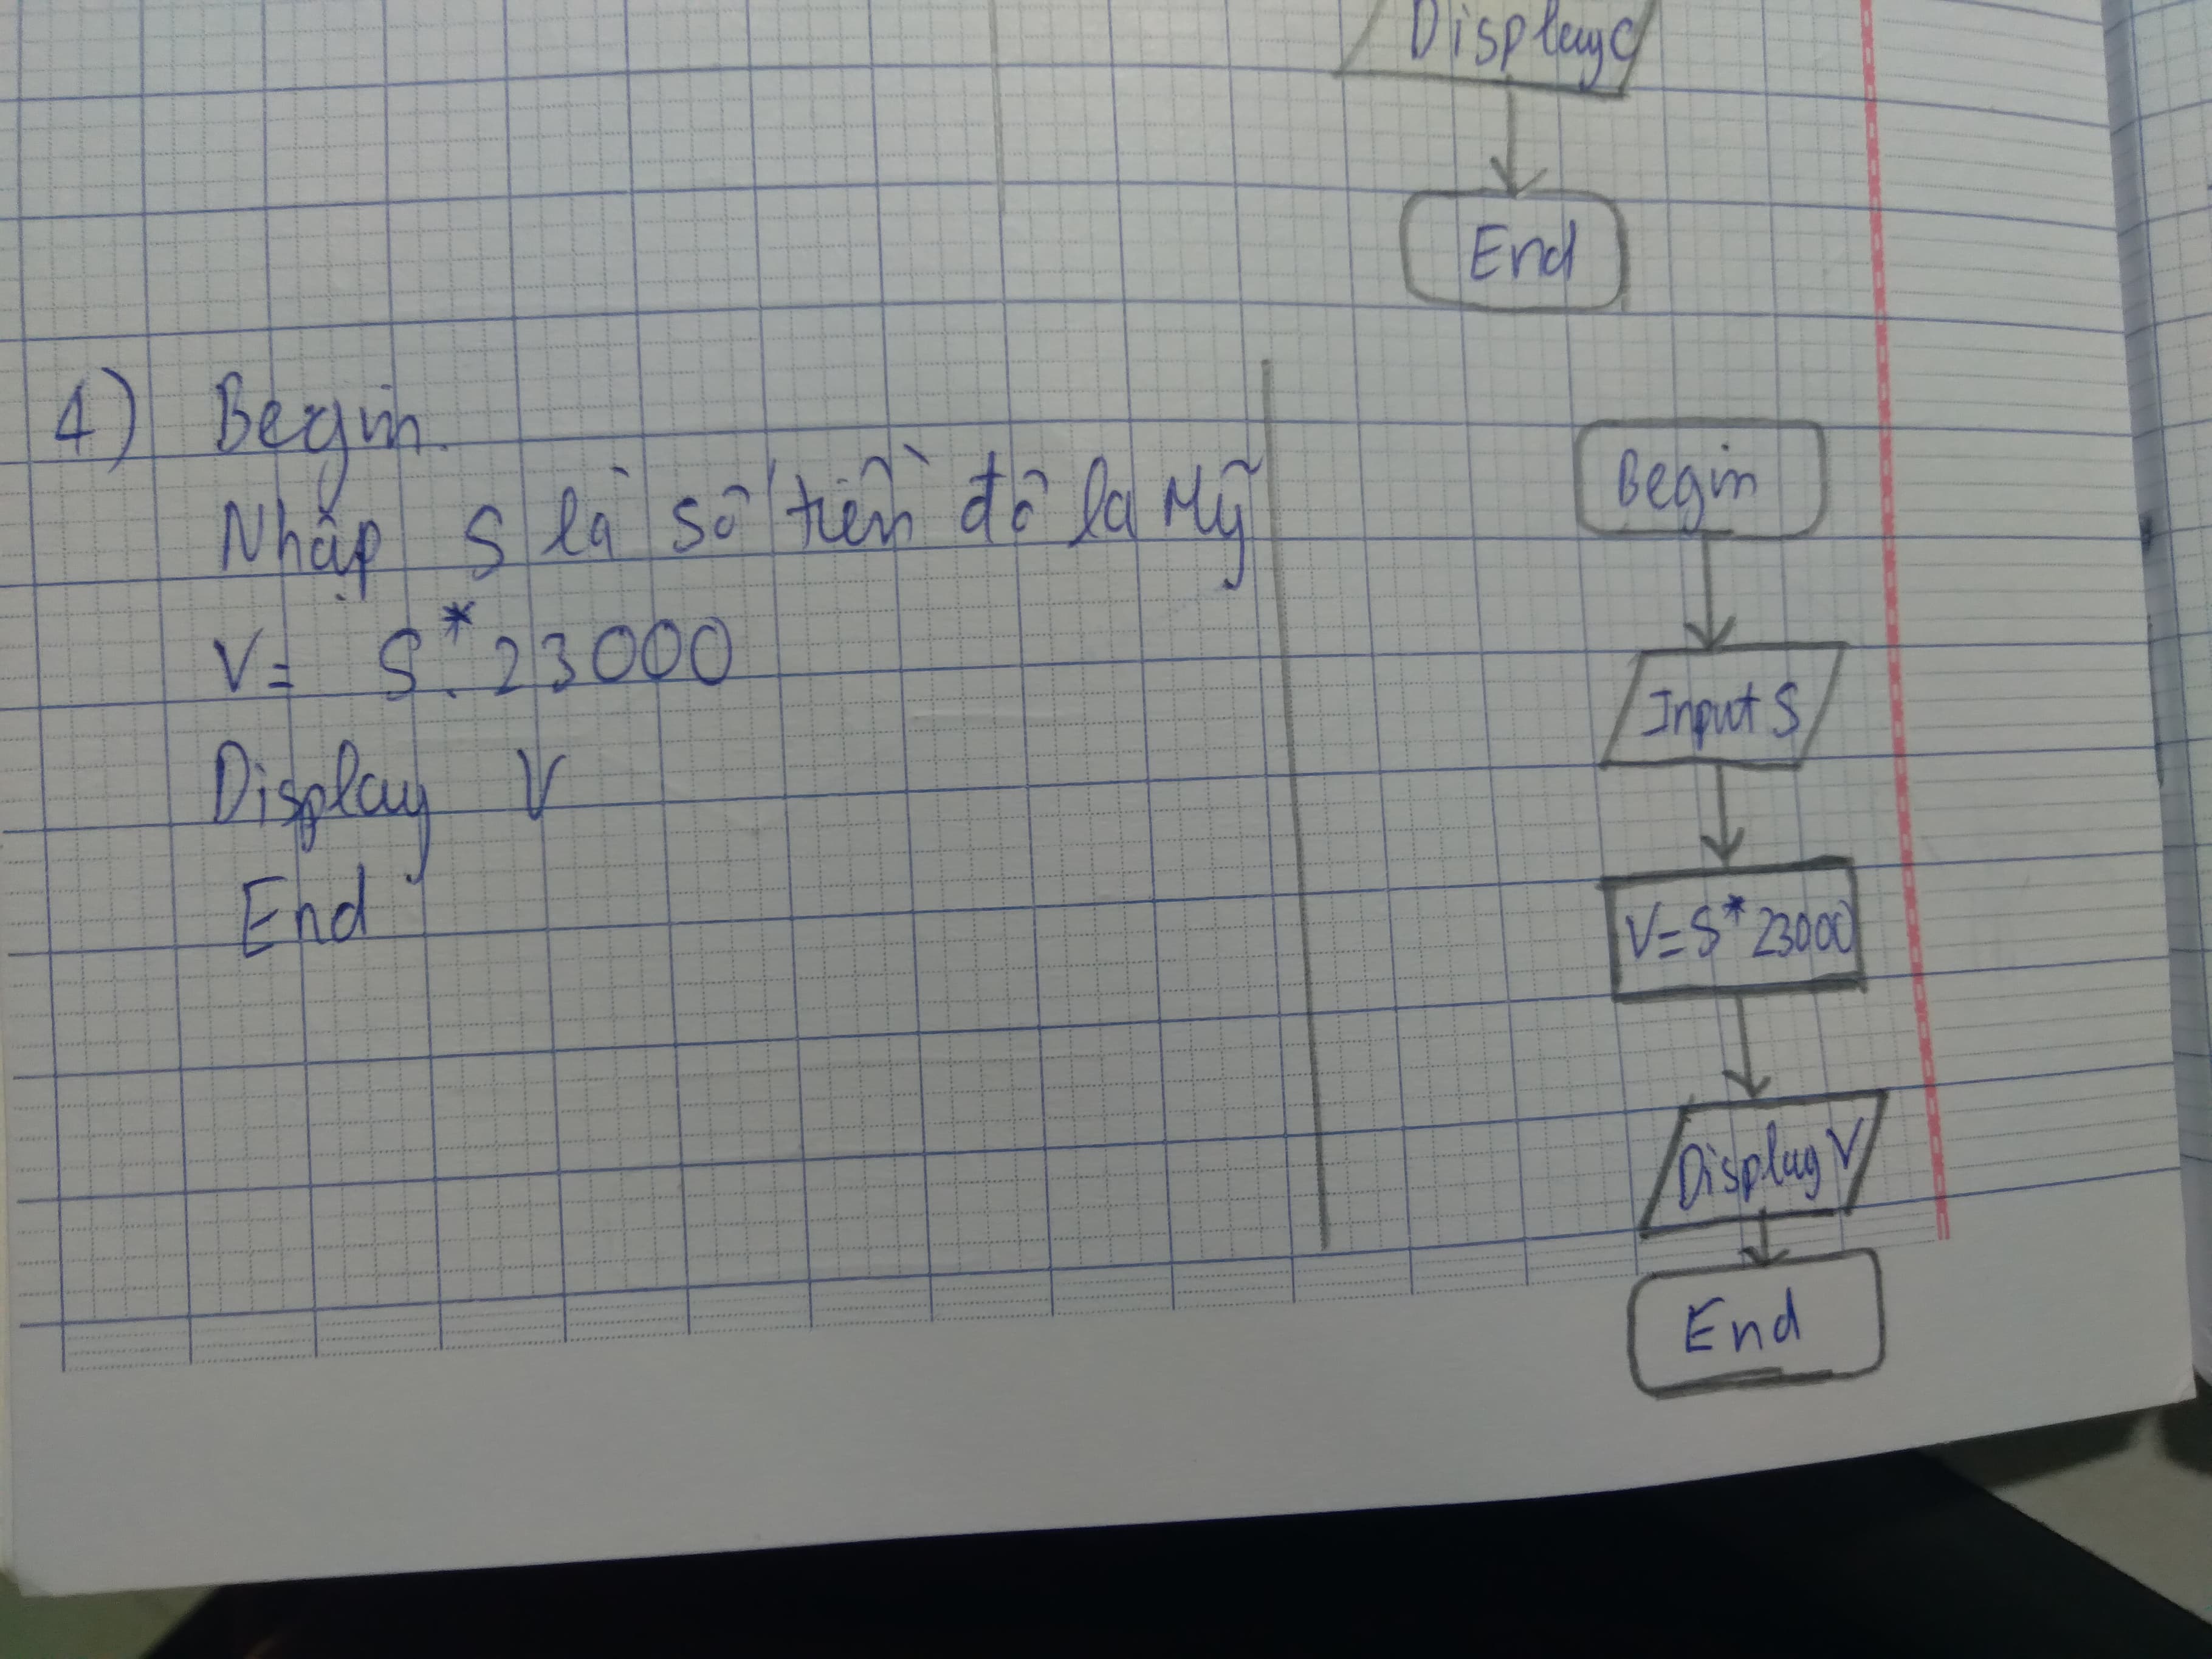 Display C
End
4) Begin.
Nhập S là số tiền đô la Mỹ
V = S * 23000
Display V
End
Begin
Input S
V = S * 23000
Display V
End